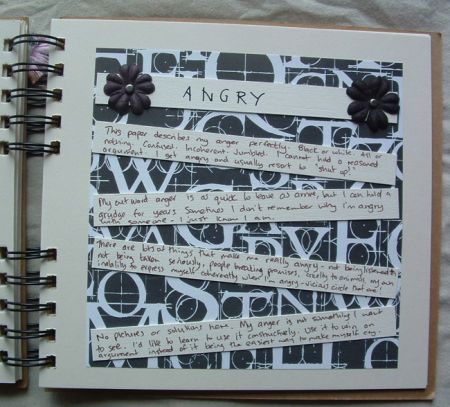 ANGRY
This paper describes my anger perfectly. Black or white. All or
nothing. Confused. Incoherent. Jumbled. I cannot hold a reasoned
argument. I get angry and usually resort to "shut up!"
My outward anger is as quick to leave as arrive, but I can hold a
grudge for years. Sometimes I don't remember why I'm angry
with someone - I just know I am.
There are lots of things that make me really angry - not being listened to,
not being taken seriously, people breaking promises, cruelty to animals, my own
inability to express myself coherently when I'm angry - vicious circle that one!
No pictures or solutions here. My anger is not something I want
to see. I'd like to learn to use it constructively. Use it to win an
argument instead of it being the easiest way to make myself cry.